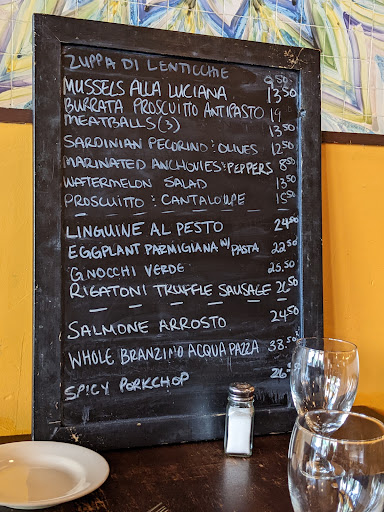 ZUPPA DI LENTICCHIE 8.50
MUSSELS ALLA LUCIANA 13.50
BURRATA PROSCUITTO ANTIPASTO 19
MEATBALLS (3) 13.50
SARDINIAN PECORINO : OLIVES 12.50
MARINATED ANCHOVIES : PEPPERS 8.50
WATERMELON SALAD 13.50
PROSCUITTO : CANTALOUPE 15.50
LINGUINE AL PESTO 24.50
EGGPLANT PARMIGIANA W/ PASTA 22.50
GNOCCHI VERDE 25.50
RIGATONI TRUFFLE SAUSAGE 26.50
SALMONE ARROSTO 24.50
WHOLE BRANZINO ACQUA PAZZA 38.50
SPICY PORKCHOP 26.50